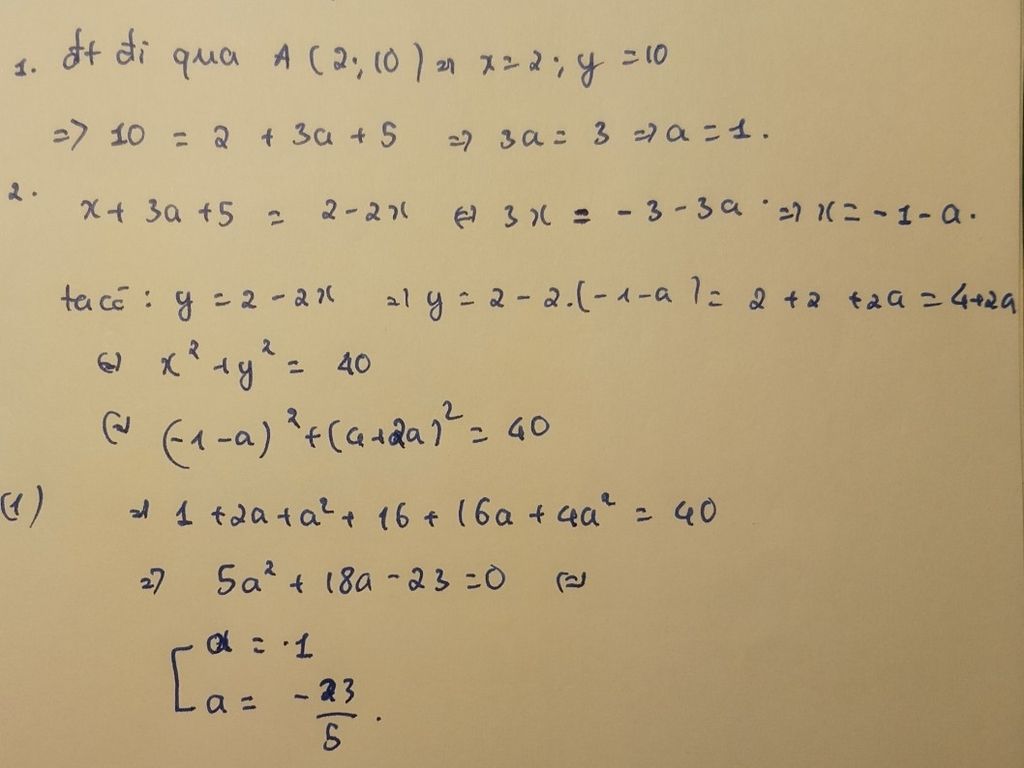 1. đt đi qua A (2; 10) => x = 2; y = 10
=> 10 = 2 + 3a + 5 => 3a = 3 => a = 1.
2.
x + 3a + 5 = 2 - 2x <=> 3x = -3 - 3a => x = -1 - a.
ta có : y = 2 - 2x => y = 2 - 2.(-1-a) = 2 + 2 + 2a = 4+2a
<=> x² + y² = 40
<=> (-1-a)² + (4+2a)² = 40
(1) => 1 + 2a + a² + 16 + 16a + 4a² = 40
=> 5a² + 18a - 23 = 0 <=>
[ a = 1
[ a = -23/5.